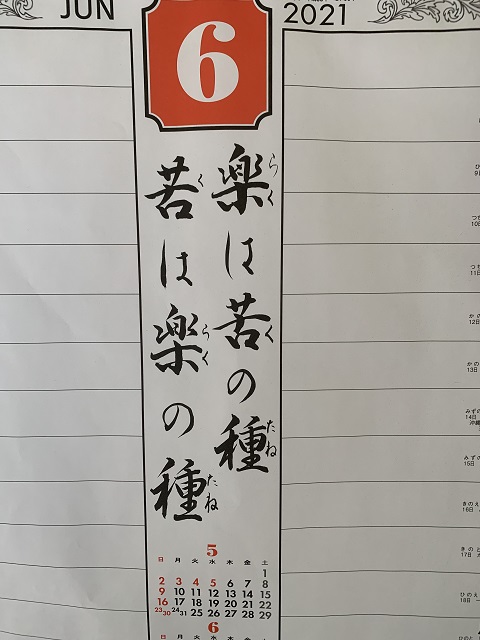 JUN
6
2021
楽は苦の種
らく
く
たね
苦は楽の種
く
らく
たね
5
日 月 火 水 木 金 土
1
2 3 4 5 6 7 8
9 10 11 12 13 14 15
16 17 18 19 20 21 22
23 30 24 31 25 26 27 28 29
6
日 月 火 水 木 金 土
10日
11日
12日
13日
14日
沖縄
15日
16日
17日
18日